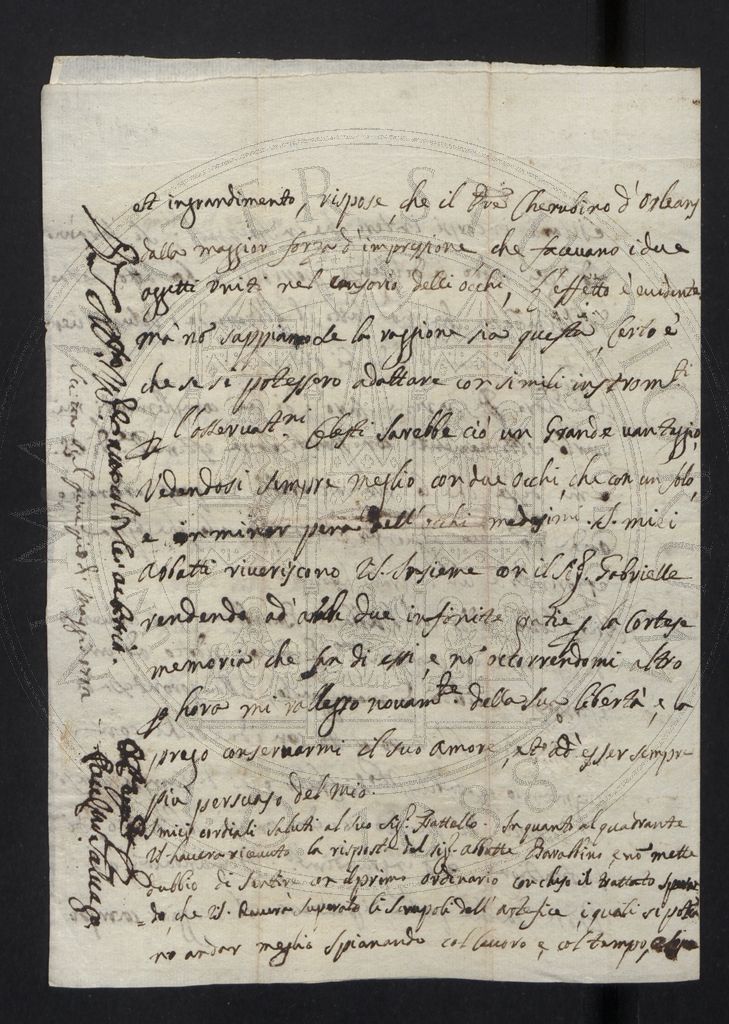 et ingrandimento, rispose, che il Pre Cherubino d'Orleans
dalla maggior forza d'impressione, che facevano i due
oggetti uniti nel sensorio delli occhi, l'effetto è evidente
mà nõ sappiamo se la raggione sia questa, Certo è
che se si potessero adattare con simili instromti
l'osservatni Celesti sarebbe ciò un grande vantaggio,
Vedendosi sempre meglio con due occhi, che con un solo,
e in minor pena dell'occhi medesimi. I miei
Abbatti riveriscono VS. insieme con il Sig. Gabrielle
rendendo ad ambi due infinite gratie p la Cortese
memoria che fan di essi, e nõ occorrendomi altro
p hora mi rallegro novamte della sua libertà, e la
prego conservarmi il suo Amore, et ad esser sempre
più persuaso del mio.
I miei cordiali saluti al suo Sig. Frattello. In quanto al quadrante
VS haverà ricevuto la risposta dal sig. Abbatte e nõ mette
dubbio di sentire con il primo ordinario concluso il trattato
do, che VS. haverà superato li scrupoli dell'artefice, i quali si
no andar meglio spianando col lavoro e col tempo,
di Maggio 1702